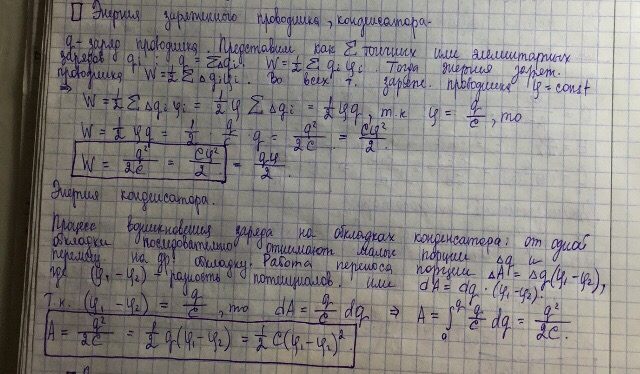 □ Энергия заряженного проводника, конденсатора-
q - заряд проводника. Представим как Σ точечных или элементарных
зарядов qi : q = ΣΔqi. W = 1/2 Σ qi φi. Тогда энергия заряж.
проводника W = 1/2 Σ Δqi φi. Во всех т. заряж. проводника φ = const
⇒ W = 1/2 Σ Δqi φi = 1/2 φ Σ Δqi = 1/2 φq, т.к φ = q/C, то
W = 1/2 φq = 1/2 · q/C · q = q²/2C = Cφ²/2.
W = q²/2C = Cφ²/2 = qφ/2.
Энергия конденсатора.
Процесс возникновения заряда на обкладках конденсатора: от одной
обкладки последовательно отнимают малые порции Δq и
перемещ на др. обкладку. Работа переноса порции ΔA = Δq(φ1-φ2),
где (φ1-φ2) = разность потенциалов. или dA = dq·(φ1-φ2).
Т.к. (φ1-φ2) = q/C, то dA = q/C dq ⇒ A = ∫₀^q q/C dq = q²/2C.
A = q²/2C = 1/2 q(φ1-φ2) = 1/2 C(φ1-φ2)²